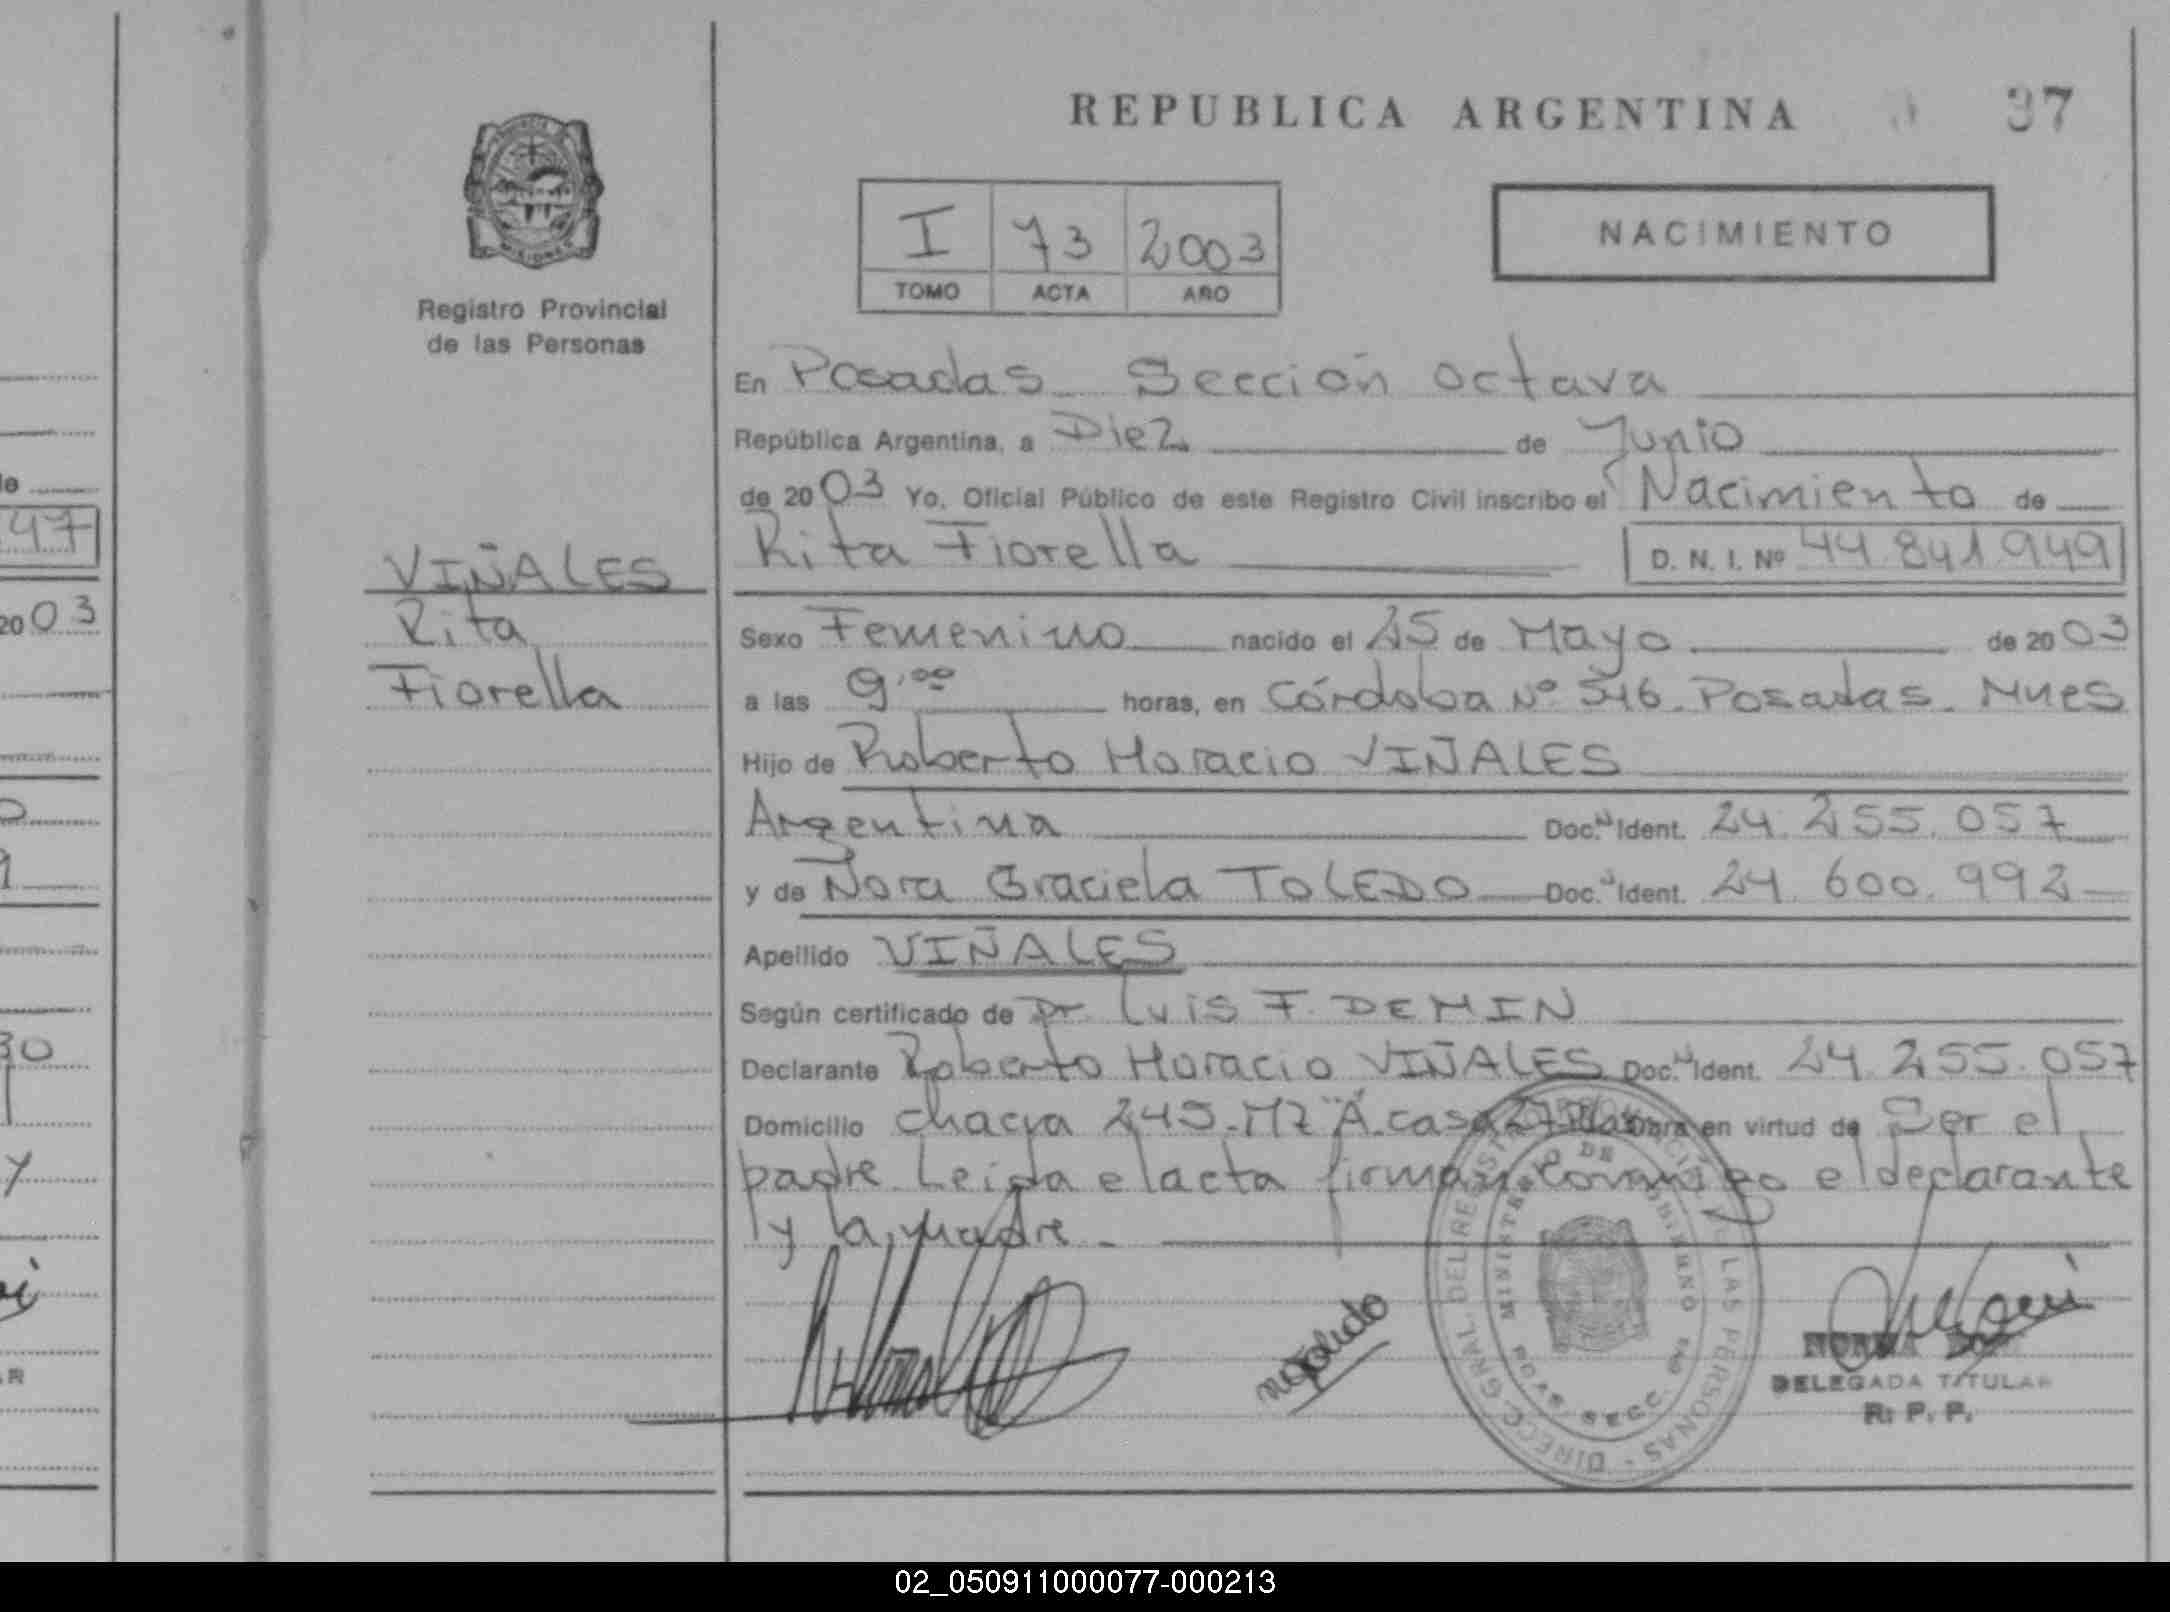 REPUBLICA ARGENTINA 37
I 73 2003
TOMO ACTA AÑO
NACIMIENTO
Registro Provincial
de las Personas
VIÑALES
Rita
Fiorella
En Posadas Sección octava
República Argentina, a Diez de Junio
de 2003 Yo, Oficial Público de este Registro Civil inscribo el Nacimiento de
Rita Fiorella D. N. I. Nº 44.841.949
Sexo Femenino nacido el 25 de Mayo de 2003
a las 9,00 horas, en Córdoba Nº 546. Posadas. Mnes
Hijo de Roberto Horacio VIÑALES
Argentina Doc. Ident. 24.255.057
y de Nora Graciela TOLEDO Doc. Ident. 24.600.992
Apellido VIÑALES
Según certificado de Dr. Luis F. DEMIN
Declarante Roberto Horacio VIÑALES Doc. Ident. 24.255.057
Domicilio chacra 245-Mz "A" casa 27 en virtud de Ser el
padre. Leida el acta firman conmigo el declarante
y la madre.-
ntoledo
DIRECC. GRAL. DEL REGISTRO PROVINCIAL DE LAS PERSONAS
MINISTERIO DE GOBIERNO
PDAS. SECC.
NORMA
DELEGADA TITULAR
R. P. P.
47
2003
30
02_050911000077-000213